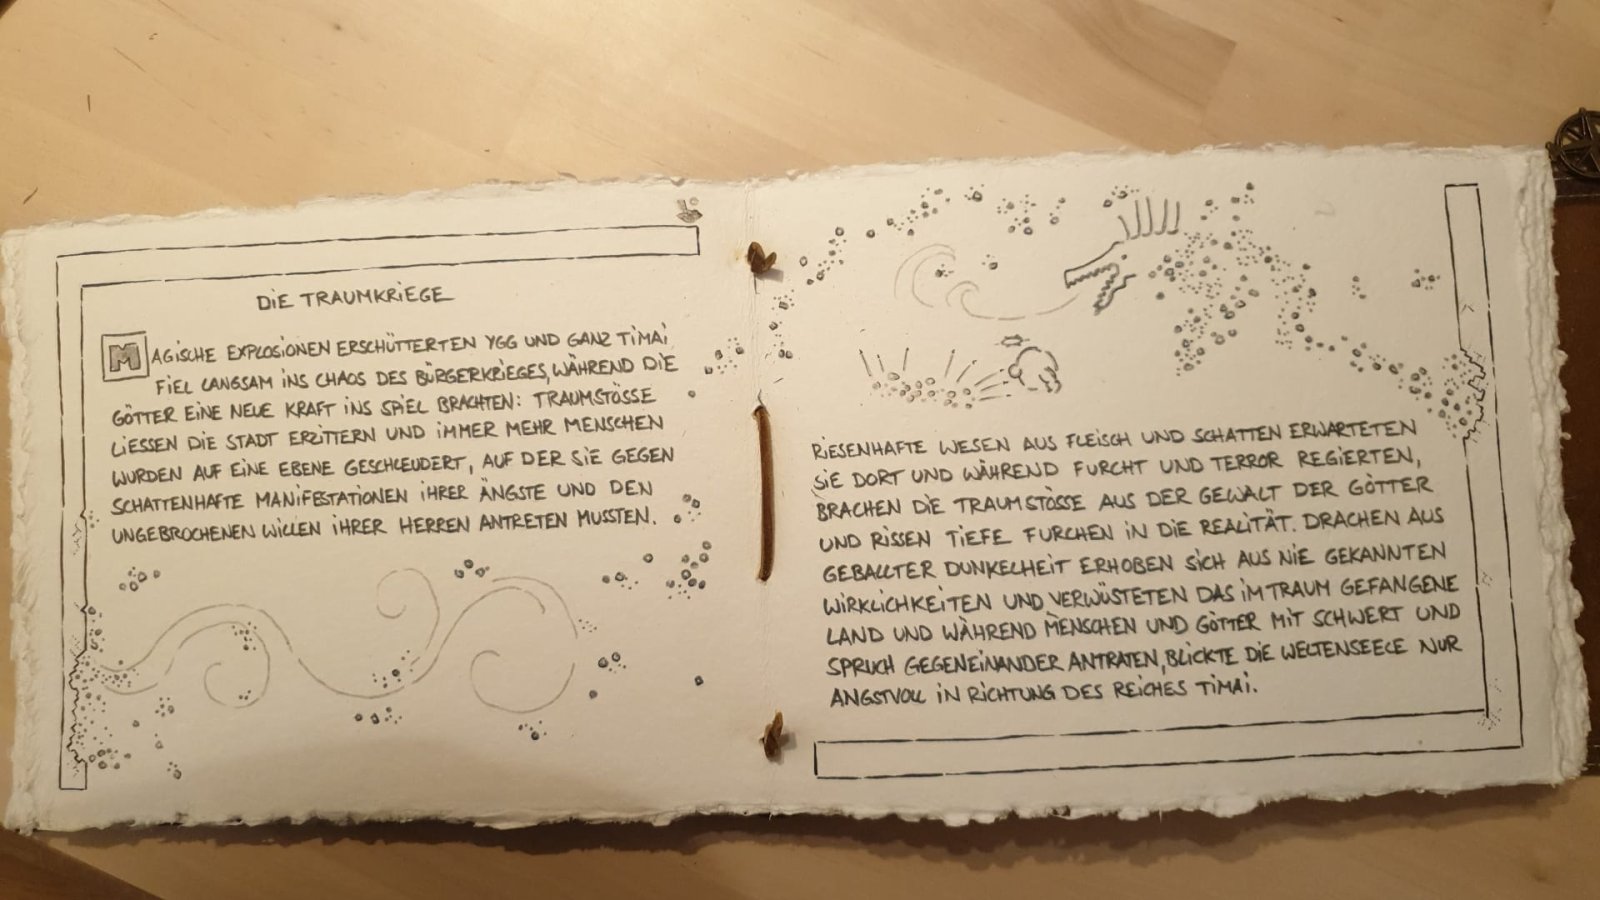 DIE TRAUMKRIEGE
MAGISCHE EXPLOSIONEN ERSCHÜTTERTEN YGG UND GANZ TIMAI
FIEL LANGSAM INS CHAOS DES BÜRGERKRIEGES, WÄHREND DIE
GÖTTER EINE NEUE KRAFT INS SPIEL BRACHTEN: TRAUMSTÖSSE
LIESSEN DIE STADT ERZITTERN UND IMMER MEHR MENSCHEN
WURDEN AUF EINE EBENE GESCHLEUDERT, AUF DER SIE GEGEN
SCHATTENHAFTE MANIFESTATIONEN IHRER ÄNGSTE UND DEN
UNGEBROCHENEN WILLEN IHRER HERREN ANTRETEN MUSSTEN.
RIESENHAFTE WESEN AUS FLEISCH UND SCHATTEN ERWARTETEN
SIE DORT UND WÄHREND FURCHT UND TERROR REGIERTEN,
BRACHEN DIE TRAUMSTÖSSE AUS DER GEWALT DER GÖTTER
UND RISSEN TIEFE FURCHEN IN DIE REALITÄT. DRACHEN AUS
GEBALLTER DUNKELHEIT ERHOBEN SICH AUS NIE GEKANNTEN
WIRKLICHKEITEN UND VERWÜSTETEN DAS IM TRAUM GEFANGENE
LAND UND WÄHREND MENSCHEN UND GÖTTER MIT SCHWERT UND
SPRUCH GEGENEINANDER ANTRATEN, BLICKTE DIE WELTENSEELE NUR
ANGSTVOLL IN RICHTUNG DES REICHES TIMAI.